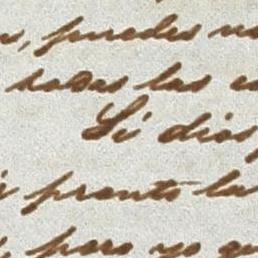 puedes
todas las
Si dios
pronto la
pero yo